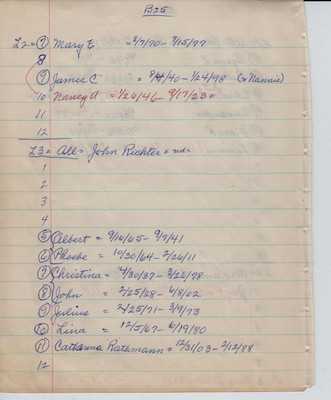 B25
L2 = 7 Mary E = 8/7/70 - 9/15/77
8
9 James C = 8/4/40 - 1/24/98 (w Nannie)
10 Nancy A = 1/26/46 - 9/17/23 =
11
12
L3 = All = John Richter = nd =
1
2
3
4
5 Albert = 9/10/65 - 9/7/41
6 Phoebe = 10/30/64 - 2/26/11
7 Christina = 4/30/37 - 3/26/98
8 John = 2/25/28 - 6/8/02
9 Julius = 2/25/71 - 3/9/73
10 Lina = 12/5/67 - 6/19/80
11 Catharina Rathmann = 12/31/03 - 2/12/88
12